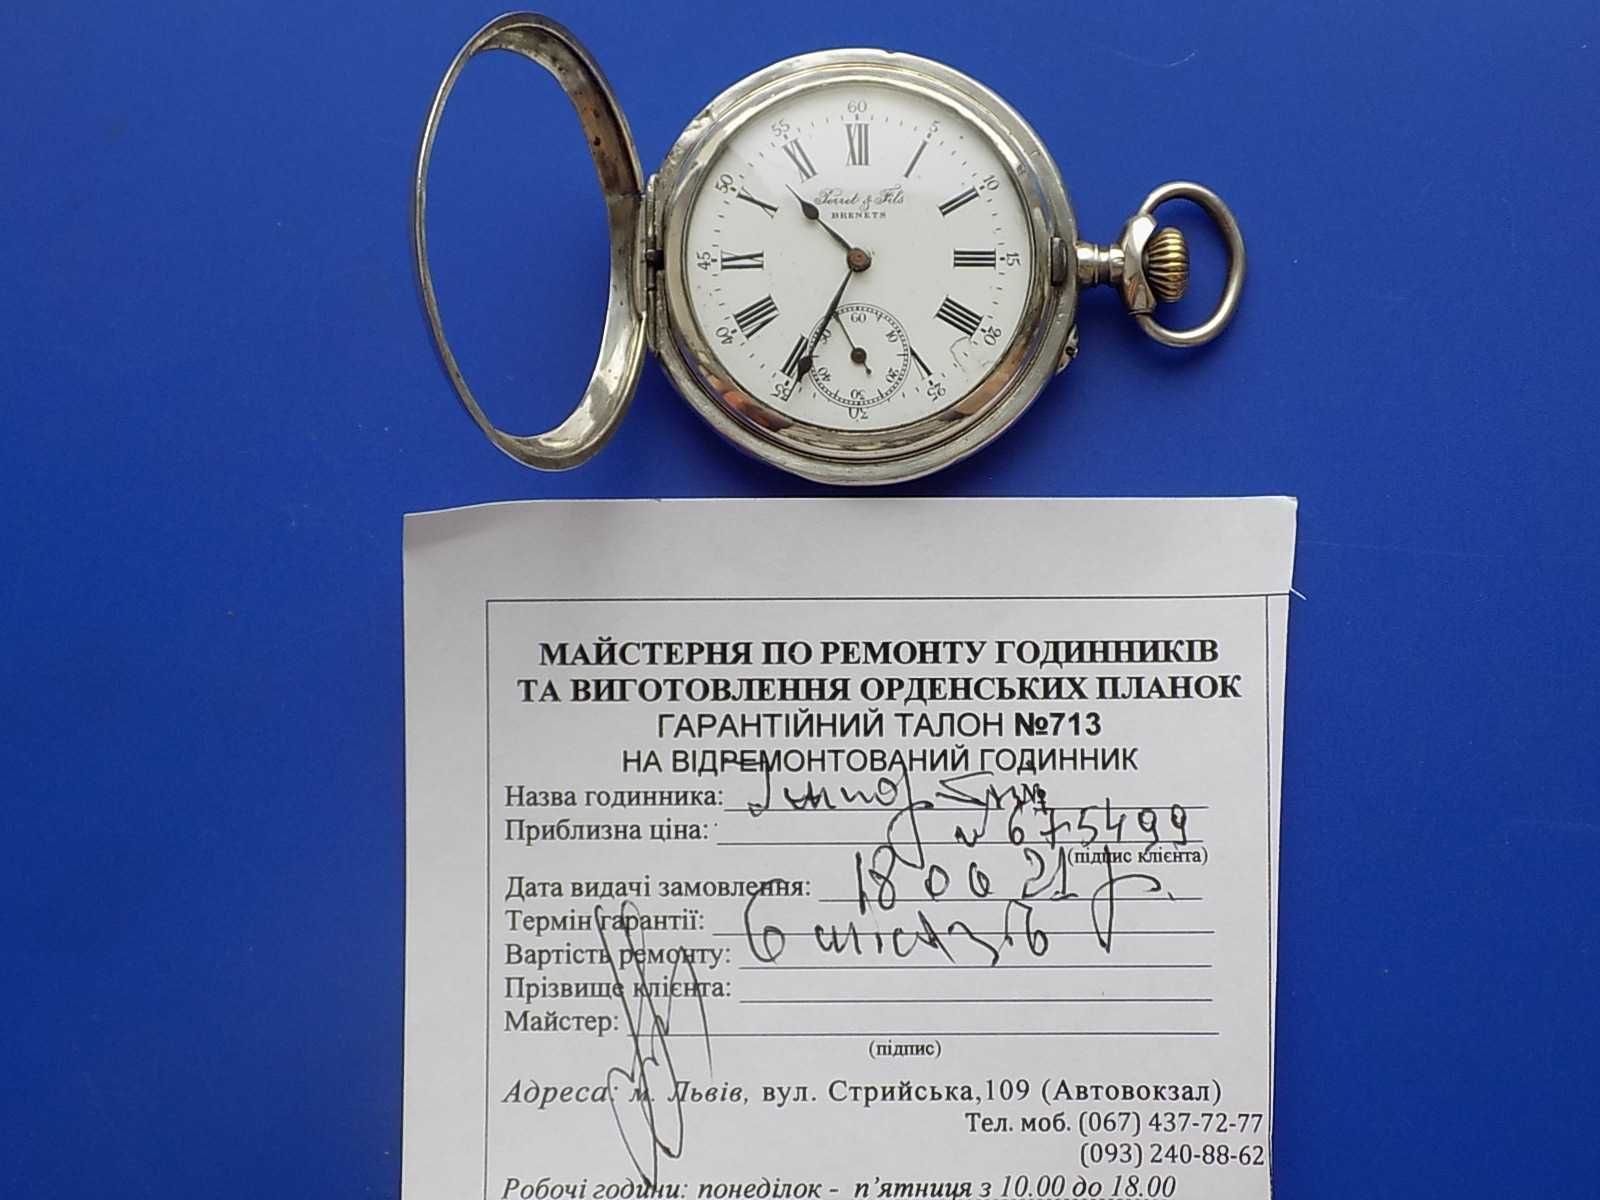 60
5
10
15
20
25
30
35
40
45
50
55
XII
I
II
III
IIII
V
VII
VIII
IX
X
XI
Perret & Fils
BRENETS
60
10
20
30
40
50
МАЙСТЕРНЯ ПО РЕМОНТУ ГОДИННИКІВ
ТА ВИГОТОВЛЕННЯ ОРДЕНСЬКИХ ПЛАНОК
ГАРАНТІЙНИЙ ТАЛОН №713
НА ВІДРЕМОНТОВАНИЙ ГОДИННИК
Назва годинника: №
Приблизна ціна: № 675499
(підпис клієнта)
Дата видачі замовлення: 18 06 21 р.
Термін гарантії: 6 місяців
Вартість ремонту:
Прізвище клієнта:
Майстер:
(підпис)
Адреса: м. Львів, вул. Стрийська,109 (Автовокзал)
Тел. моб. (067) 437-72-77
(093) 240-88-62
Робочі години: понеділок - п’ятниця з 10.00 до 18.00